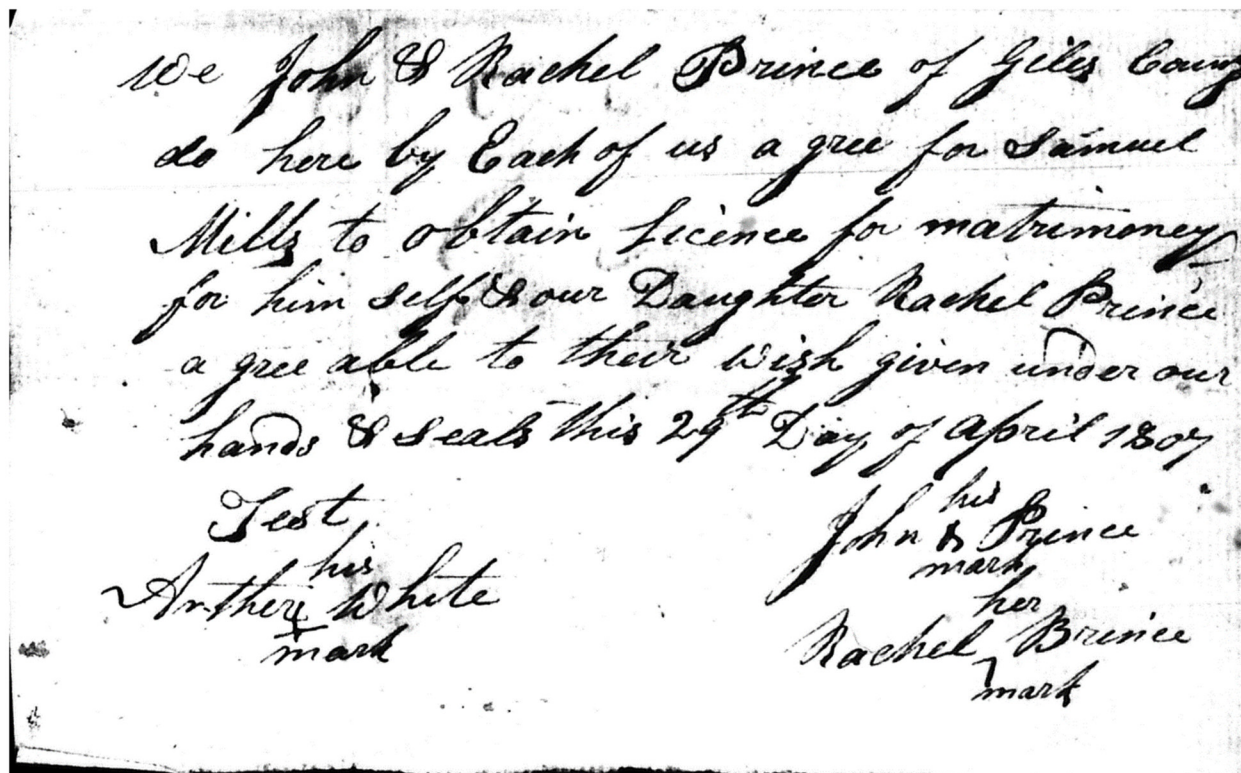 We John & Rachel Prince of Giles County
do here by Each of us a gree for Samuel
Mills to obtain Licence for matrimoney
for him self & our Daughter Rachel Prince
a gree able to their wish given under our
hands & seals this 29th Day of April 1807
Test
his
Arther White
mark
his
John Prince
mark
her
Rachel Prince
mark